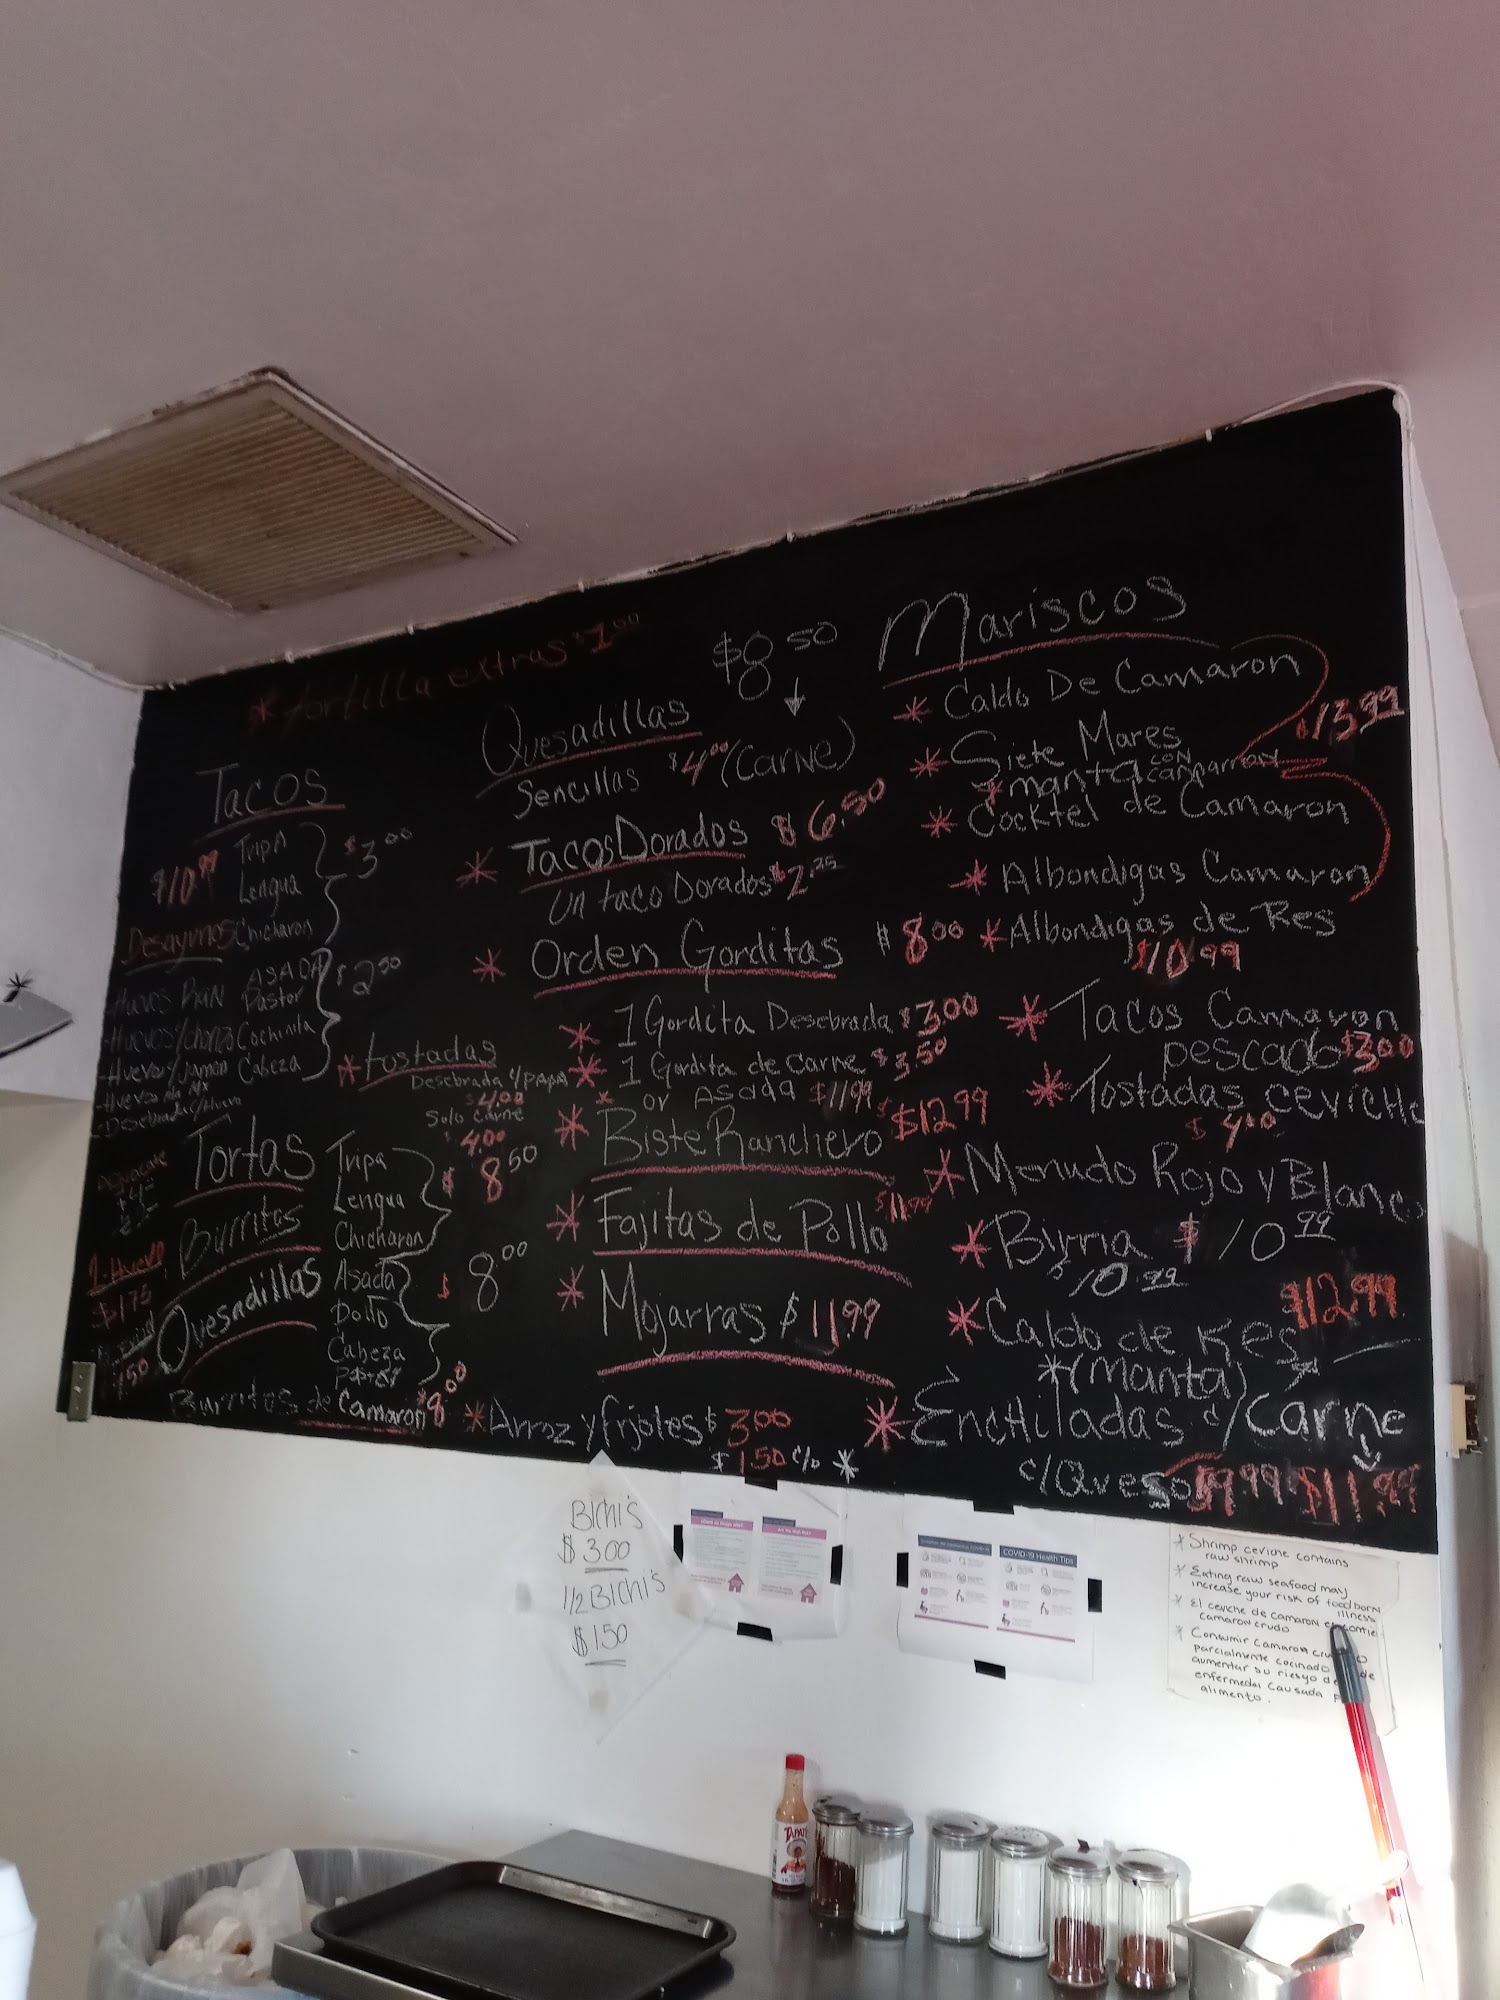 *tortilla extras $1.00
Tacos
$10.99
Tripa
Lengua
Chicharon
$3.00
Desayunos
Asada
Pastor
Cochinita
Cabeza
$2.50
-Huevos
-Huevos/choriz
-Huevos/Jamon
-Huevos
Desebrada c/Huevo
*Tostadas
Desebrada c/PAPA
$4.00
Solo carne
$4.00
Aguacate
Tortas
Burritos
Quesadillas
Tripa
Lengua
Chicharon
$8.50
Asada
Pollo
Cabeza
Pastor
$8.00
$1.75
1.50
Burritos de Camaron $8.00
Quesadillas
$8.50
Sencillas $4.00 (Carne)
* Tacos Dorados $6.50
Un taco Dorados $2.25
* Orden Gorditas $8.00
* 1 Gordita Desebrada $3.00
* 1 Gordita de carne $3.50
* or Asada $11.99
* Biste Ranchero $12.99
* Fajitas de Pollo $11.99
* Mojarras $11.99
*Arroz y frijoles $3.00
$1.50 c/o *
Mariscos
* Caldo De Camaron
$13.99
* Siete Mares
*manta con camarron
* Cocktel de Camaron
* Albondigas Camaron
*Albondigas de Res
$10.99
* Tacos Camaron
pescado $3.00
* Tostadas ceviche
$4.00
*Menudo Rojo y Blanco
*Birria $10.99
$10.99
*Caldo de Res $12.99
*(Manta)*
*Enchiladas c/Carne
c/Queso $9.99 $11.99
BIChi's
$3.00
1/2 BIChi's
$1.50
COVID-19 Health Tips
* Shrimp ceviche contains
raw shrimp
* Eating raw seafood may
increase your risk of foodborn
illness
* El ceviche de camaron
camaron crudo
* Consumir camaron
parcialmente cocinado
aumentar su riesgo
enfermedad causada
alimento.
TAPATÍO